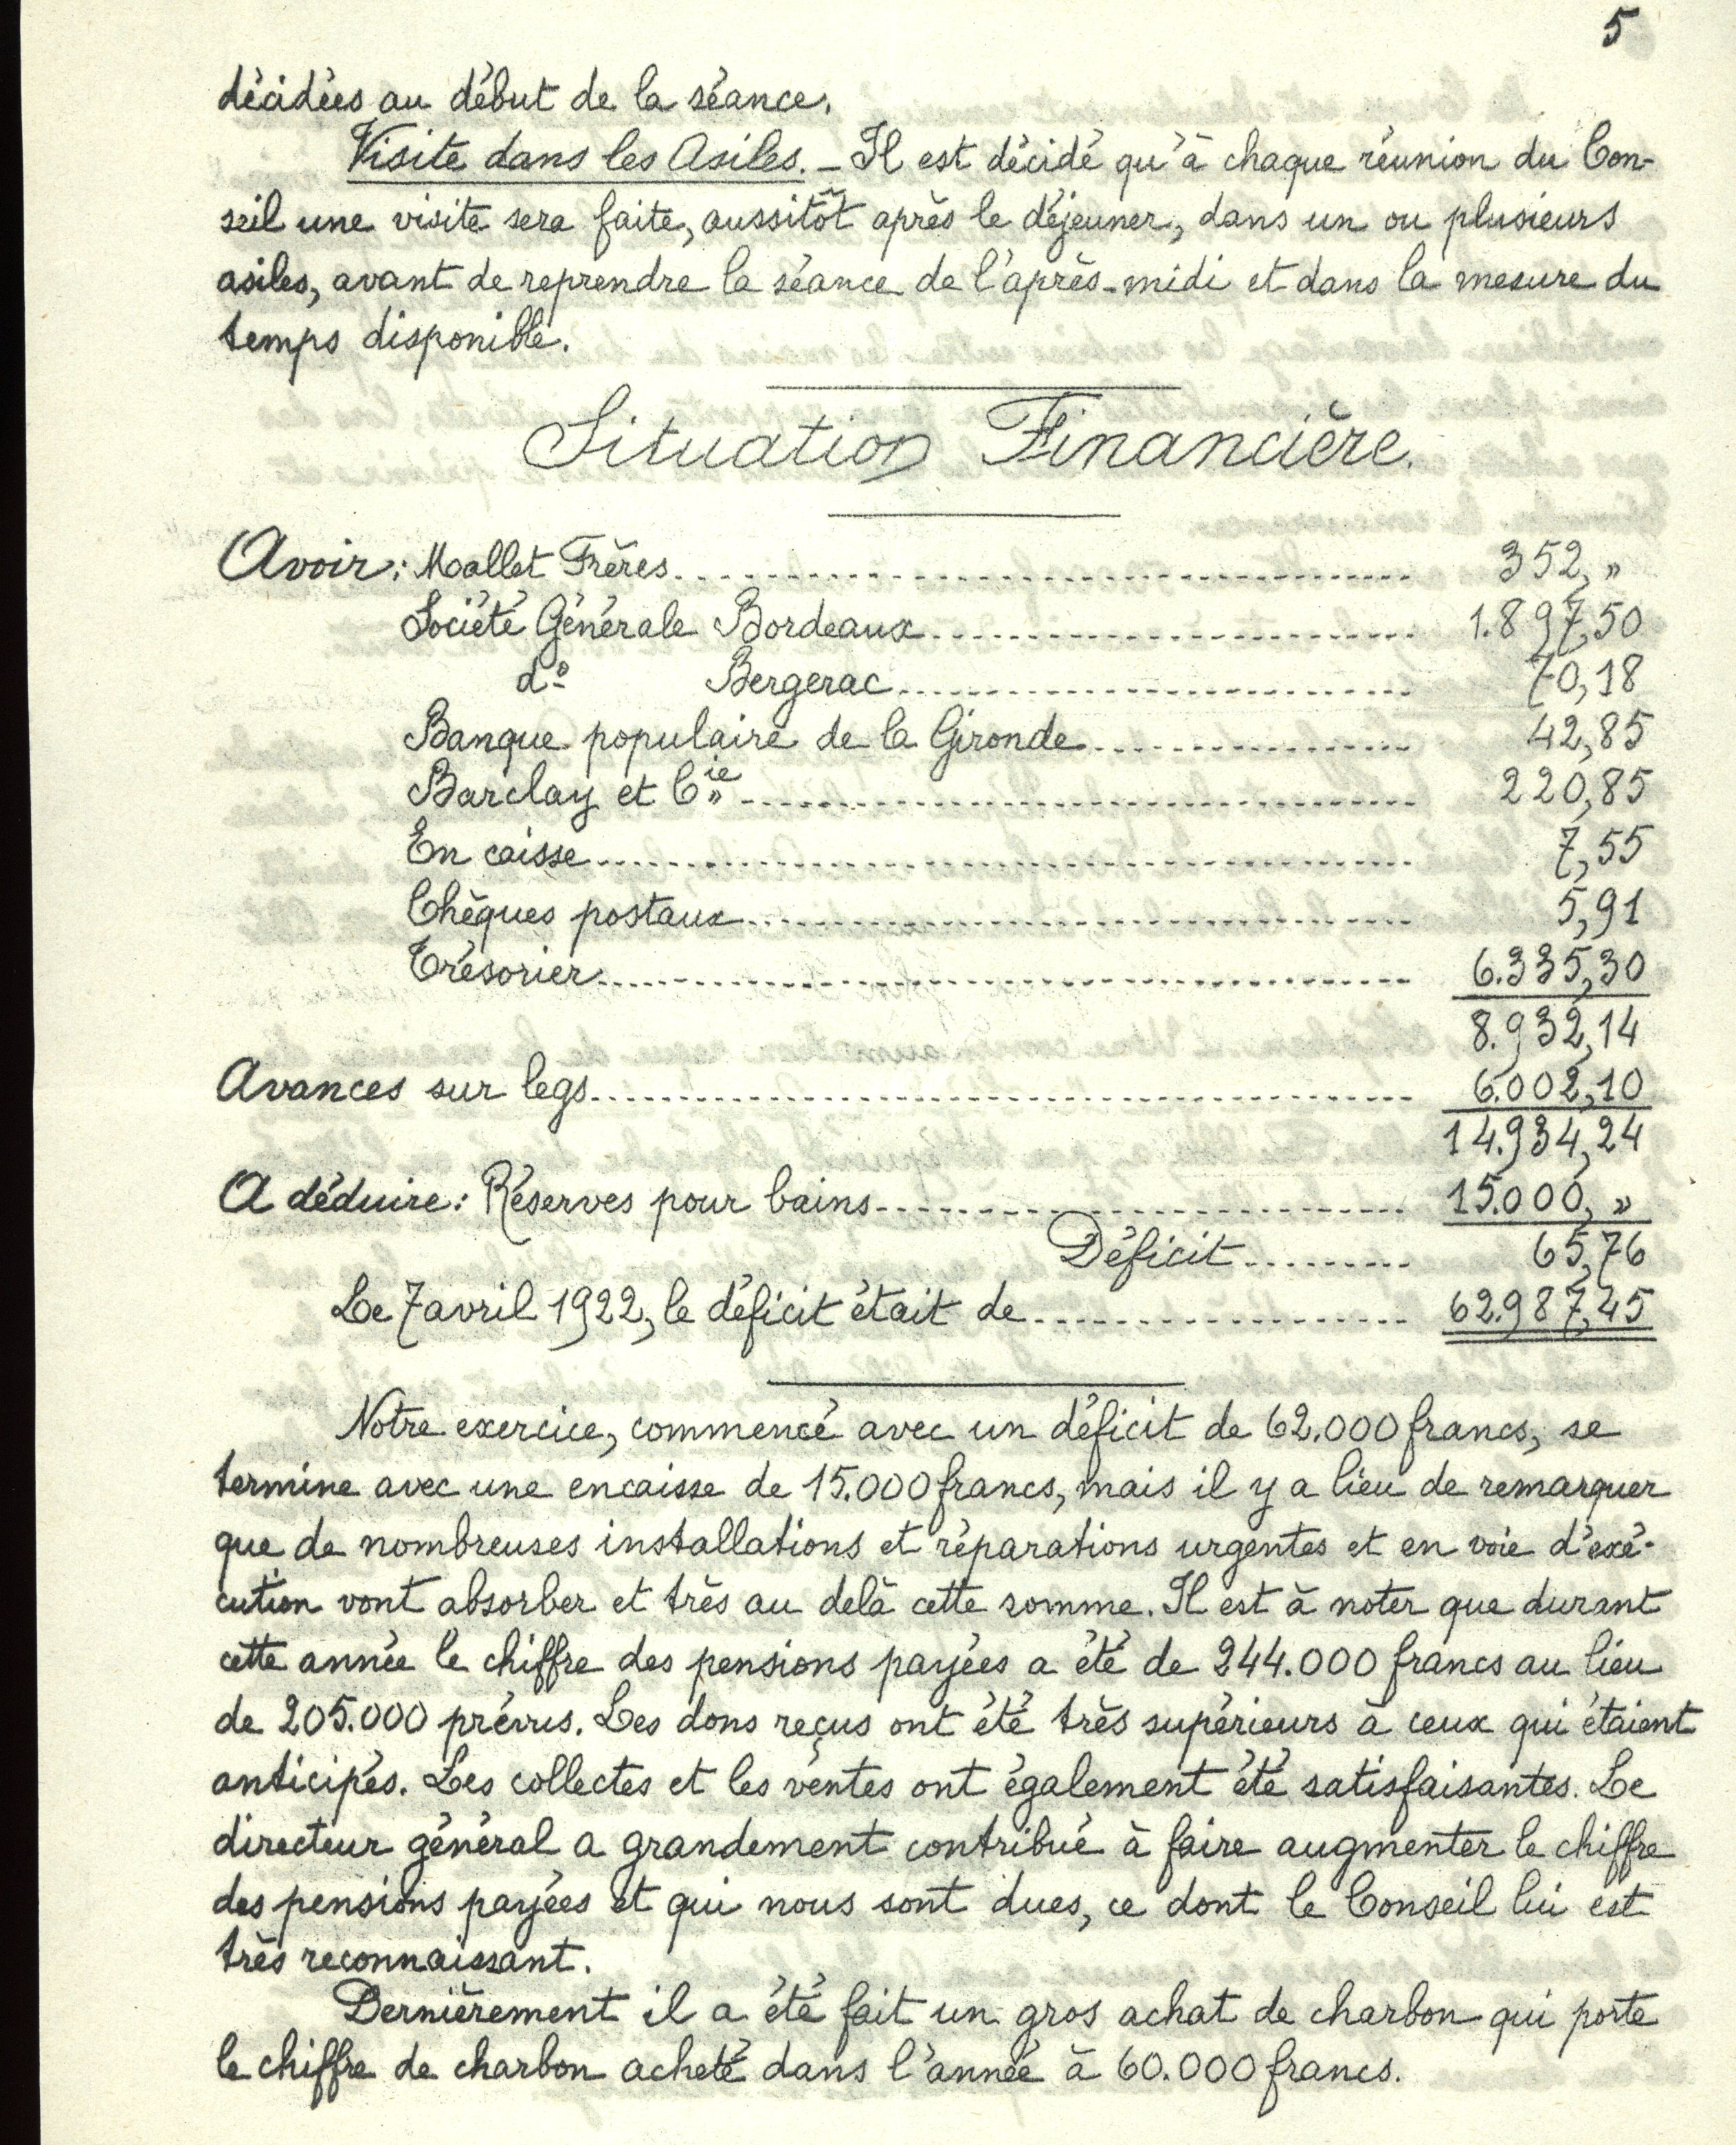 5
décidées au début de la séance.
Visite dans les Asiles. _ Il est décidé qu'à chaque réunion du Con-
seil une visite sera faite, aussitôt après le déjeuner, dans un ou plusieurs
asiles, avant de reprendre la séance de l'après-midi et dans la mesure du
temps disponible.
Situation Financière.
Avoir: Mallet Frères........................ 352, »
Société Générale Bordeaux........................ 1.897,50
do Bergerac........................ 70,18
Banque populaire de la Gironde........................ 42,85
Barclay et Cie........................ 220,85
En caisse........................ 7,55
Chèques postaux........................ 5,91
Trésorier........................ 6.335,30
8.932,14
Avances sur legs........................ 6.002,10
14.934,24
A déduire: Réserves pour bains........................ 15.000, »
Déficit......... 65,76
Le 7 avril 1922, le déficit était de........................ 62.987,45
Notre exercice, commencé avec un déficit de 62.000 francs, se
termine avec une encaisse de 15.000 francs, mais il y a lieu de remarquer
que de nombreuses installations et réparations urgentes et en voie d'exé-
cution vont absorber et très au delà cette somme. Il est à noter que durant
cette année le chiffre des pensions payées a été de 244.000 francs au lieu
de 205.000 prévus. Les dons reçus ont été très supérieurs à ceux qui étaient
anticipés. Les collectes et les ventes ont également été satisfaisantes. Le
directeur général a grandement contribué à faire augmenter le chiffre
des pensions payées et qui nous sont dues, ce dont le Conseil lui est
très reconnaissant.
Dernièrement il a été fait un gros achat de charbon qui porte
le chiffre de charbon acheté dans l'année à 60.000 francs.